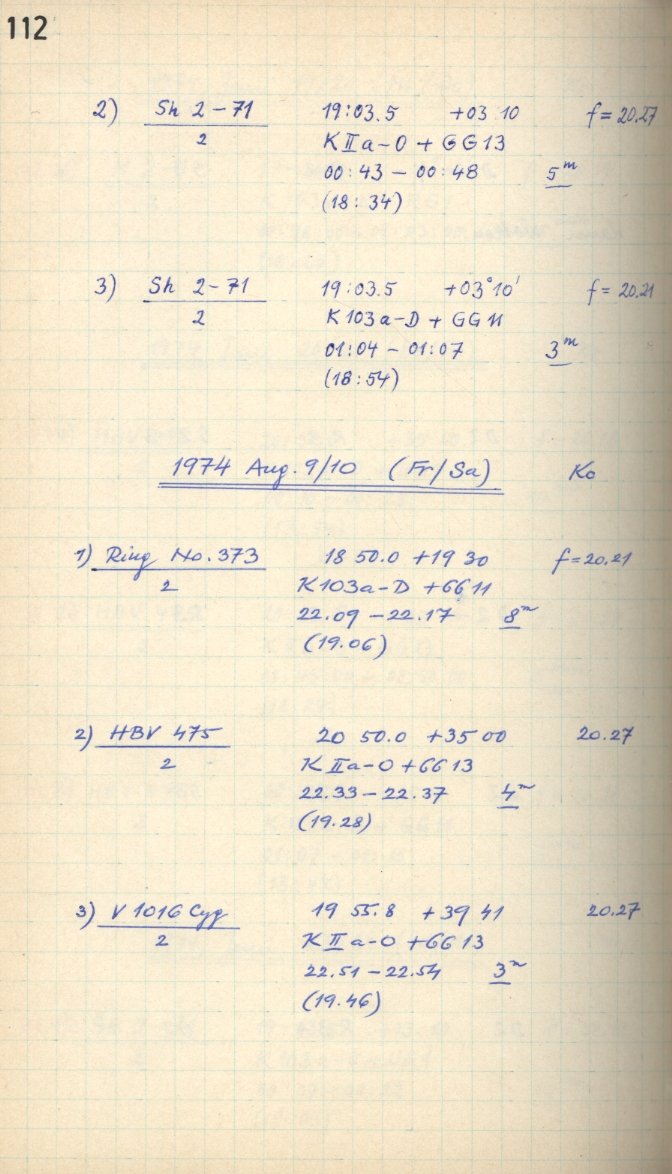 112
2) Sh 2-71 19:03.5 +03 10 f = 20.27
2 K II a-O + GG13
00:43 - 00:48 5m
(18:34)
3) Sh 2-71 19:03.5 +03°10' f = 20.21
2 K103a-D + GG11
01:04 - 01:07 3m
(18:54)
1974 Aug. 9/10 (Fr/Sa) Ko
1) Ring No. 373 18 50.0 +19 30 f = 20.21
2 K103a-D + GG11
22.09 - 22.17 8m
(19.06)
2) HBV 475 20 50.0 +35 00 20.27
2 K II a-O + GG13
22.33 - 22.37 4m
(19.28)
3) V 1016 Cyg 19 55.8 +39 41 20.27
2 K II a-O + GG13
22.51 - 22.54 3m
(19.46)